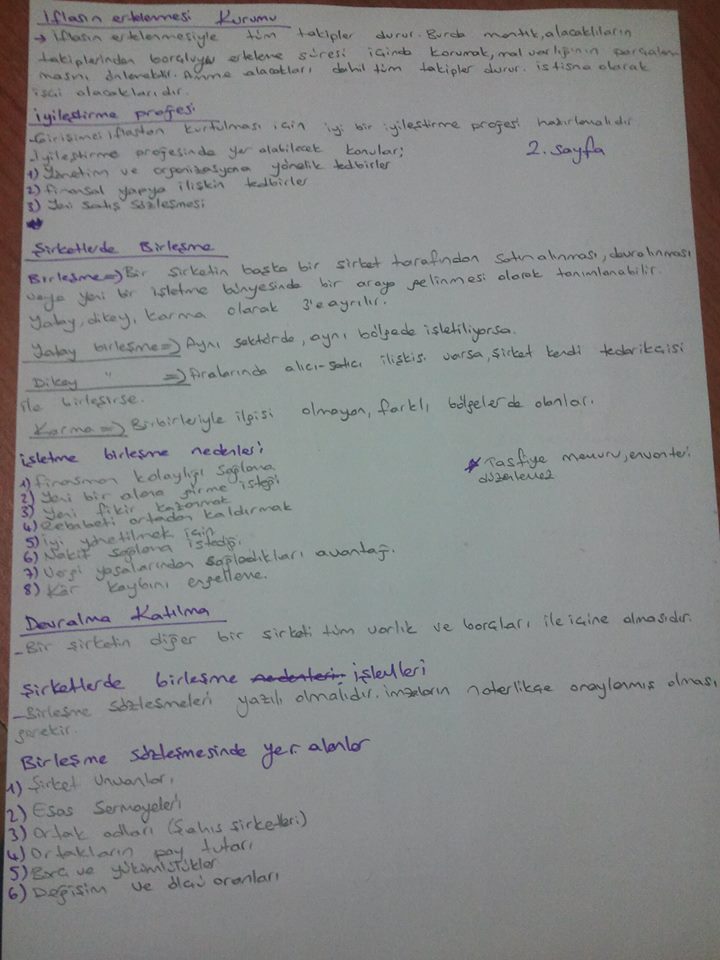 İflasın ertelenmesi Kurumu
→ İflasın ertelenmesiyle tüm takipler durur. Burda mantık, alacaklıların
takiplerinden borçluyu erteleme süresi içinde korumak, mal varlığının parçalan-
masını önlemektir. Amme alacakları dahil tüm takipler durur. istisna olarak
işçi alacaklarıdır.
iyileştirme projesi
- Girişimci iflastan kurtulması için iyi bir iyileştirme projesi hazırlamalıdır
- İyileştirme projesinde yer alabilecek konular;
2. sayfa
1) Yönetim ve organizasyona yönelik tedbirler
2) Finansal yapıya ilişkin tedbirler
3) Yeni satış sözleşmesi
Şirketlerde Birleşme
Birleşme => Bir şirketin başka bir şirket tarafından satın alınması, devralınması
veya yeni bir işletme bünyesinde bir araya gelinmesi olarak tanımlanabilir.
Yatay, dikey, karma olarak 3'e ayrılır.
Yatay birleşme => Aynı sektörde, aynı bölgede işletiliyorsa.
Dikey " => Aralarında alıcı-satıcı ilişkisi varsa, şirket kendi tedarikçisi
ile birleşirse.
Karma => Birbirleriyle ilgisi olmayan, farklı bölgelerde olanlar.
işletme birleşme nedenleri
1) Finansman kolaylığı sağlama
2) Yeni bir alana girme isteği
3) Yeni fikir kazanmak
4) Rekabeti ortadan kaldırmak
5) iyi yönetilmek için
6) Nakit sağlama isteği
7) Vergi yasalarından sağladıkları avantajı.
8) Kâr kaybını engelleme.
Tasfiye memuru, envanteri
düzenlemez
Devralma Katılma
- Bir şirketin diğer bir şirketi tüm varlık ve borçları ile içine almasıdır.
Şirketlerde birleşme nedenleri işlevleri
- Birleşme sözleşmeleri yazılı olmalıdır. imzaların noterlikçe onaylanmış olması
gerekir.
Birleşme sözleşmesinde yer alanlar
1) Şirket Unvanları
2) Esas Sermayeleri
3) Ortak adları (Şahıs şirketleri)
4) Ortakların pay tutarı
5) Borç ve yükümlülükler
6) Değişim ve ölçü oranları